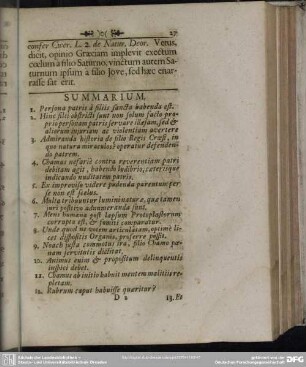 27
confer Cicer. L. 2. de Natur. Deor. Verus,
dicit, opinio Græciam implevit exectum
cœlum à filio Saturno, vinctum autem Sa-
turnum ipsum a filio Jove, sed hæc enar-
rasse sat erit.
SUMMARIUM.
1. Persona patris à filiis sancta habenda est.
2. Hinc filii obstricti sunt non solum facto pro-
prio personam patris servare illæsam, sed &
aliorum injuriam ac violentiam avertere
3. Admiranda historia de filio Regis Cræsi, in
quo natura miraculose operatur defenden-
do patrem.
4. Chamus nefariè contra reverentiam patri
debitam agit, habendo ludibrio, cæterisque
indicando nuditatem patris.
5. Ex improviso videre pudenda parentum per
se non est scelus.
6. Multa tribuuntur lumini naturæ, quæ tamen
juri positivo adnumeranda sunt.
7. Mens humana post lapsum Protoplastorum
corrupta est, & fumiti comparatur.
8. Unde quod ne vocem articulatam, optimè li-
cet dispositis Organis, proferre possit.
9. Noach justa commotus ira, filio Chamo pæ-
nam servitutis dictitat.
10. Animus enim & propositum delinquentis
inspici debet.
11. Chamus ab initio habuit mentem malitiis re-
pletam.
12. Rubrum caput habuisse quæritur?
D 2
13. Et